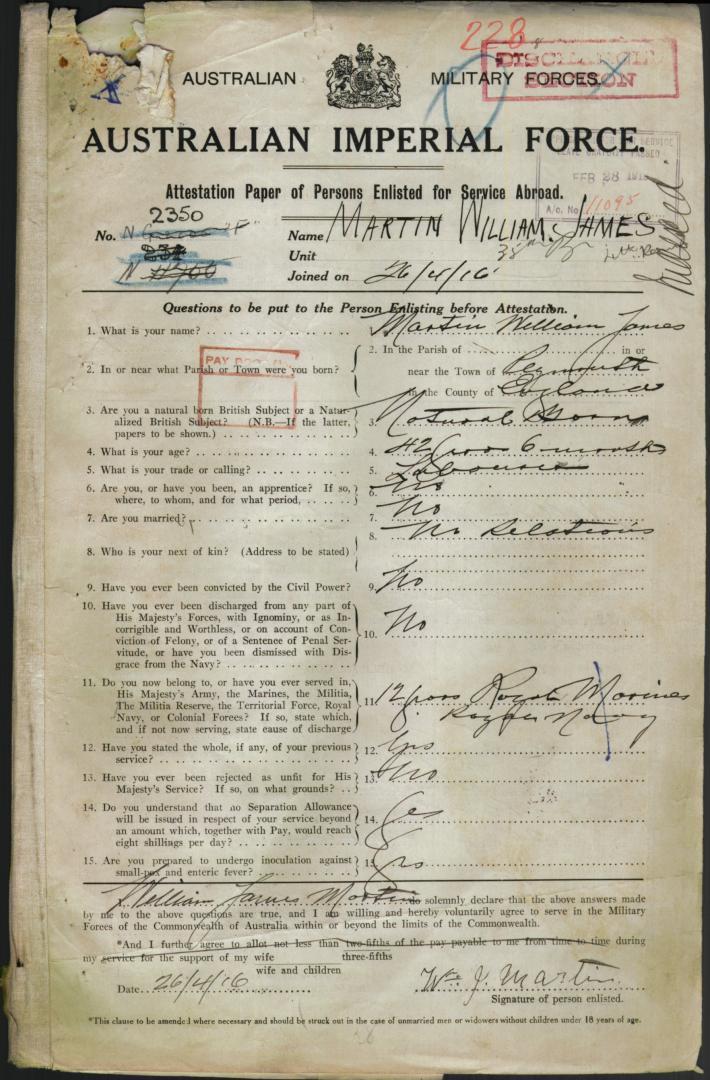 228
AUSTRALIAN MILITARY FORCES.
DISCHARGED
SECTION
AUSTRALIAN IMPERIAL FORCE.
FEB 28
A/c. No. 11095
Attestation Paper of Persons Enlisted for Service Abroad.
2350
No. Name MARTIN WILLIAM JAMES
Unit
Joined on 26/4/16
Questions to be put to the Person Enlisting before Attestation.
1. What is your name? Martin William James
2. In or near what Parish or Town were you born?
2. In the Parish of in or
near the Town of Plymouth
in the County of England
3. Are you a natural born British Subject or a Natur-
alized British Subject? (N.B.—If the latter,
papers to be shown.)
3. Natural Born
4. What is your age? 4. 42 years 6 months
5. What is your trade or calling? 5. Labourer
6. Are you, or have you been, an apprentice? If so,
where, to whom, and for what period,
6. No
7. Are you married? 7. No
8. Who is your next of kin? (Address to be stated)
8. No Relations
9. Have you ever been convicted by the Civil Power? 9. No
10. Have you ever been discharged from any part of
His Majesty's Forces, with Ignominy, or as In-
corrigible and Worthless, or on account of Con-
viction of Felony, or of a Sentence of Penal Ser-
vitude, or have you been dismissed with Dis-
grace from the Navy?
10. No
11. Do you now belong to, or have you ever served in,
His Majesty's Army, the Marines, the Militia,
The Militia Reserve, the Territorial Force, Royal
Navy, or Colonial Forces? If so, state which,
and if not now serving, state cause of discharge
11. 12 years Royal Marines
Navy
12. Have you stated the whole, if any, of your previous
service?
12. Yes
13. Have you ever been rejected as unfit for His
Majesty's Service? If so, on what grounds?
13. No
14. Do you understand that no Separation Allowance
will be issued in respect of your service beyond
an amount which, together with Pay, would reach
eight shillings per day?
14. Yes
15. Are you prepared to undergo inoculation against
small-pox and enteric fever?
15. Yes
I William James Martin do solemnly declare that the above answers made
by me to the above questions are true, and I am willing and hereby voluntarily agree to serve in the Military
Forces of the Commonwealth of Australia within or beyond the limits of the Commonwealth.
*And I further agree to allot not less than two-fifths of the pay payable to me from time to time during
my service for the support of my wife three-fifths
wife and children
Date 26/4/16 Wm J. Martin
Signature of person enlisted.
*This clause to be amended where necessary and should be struck out in the case of unmarried men or widowers without children under 18 years of age.